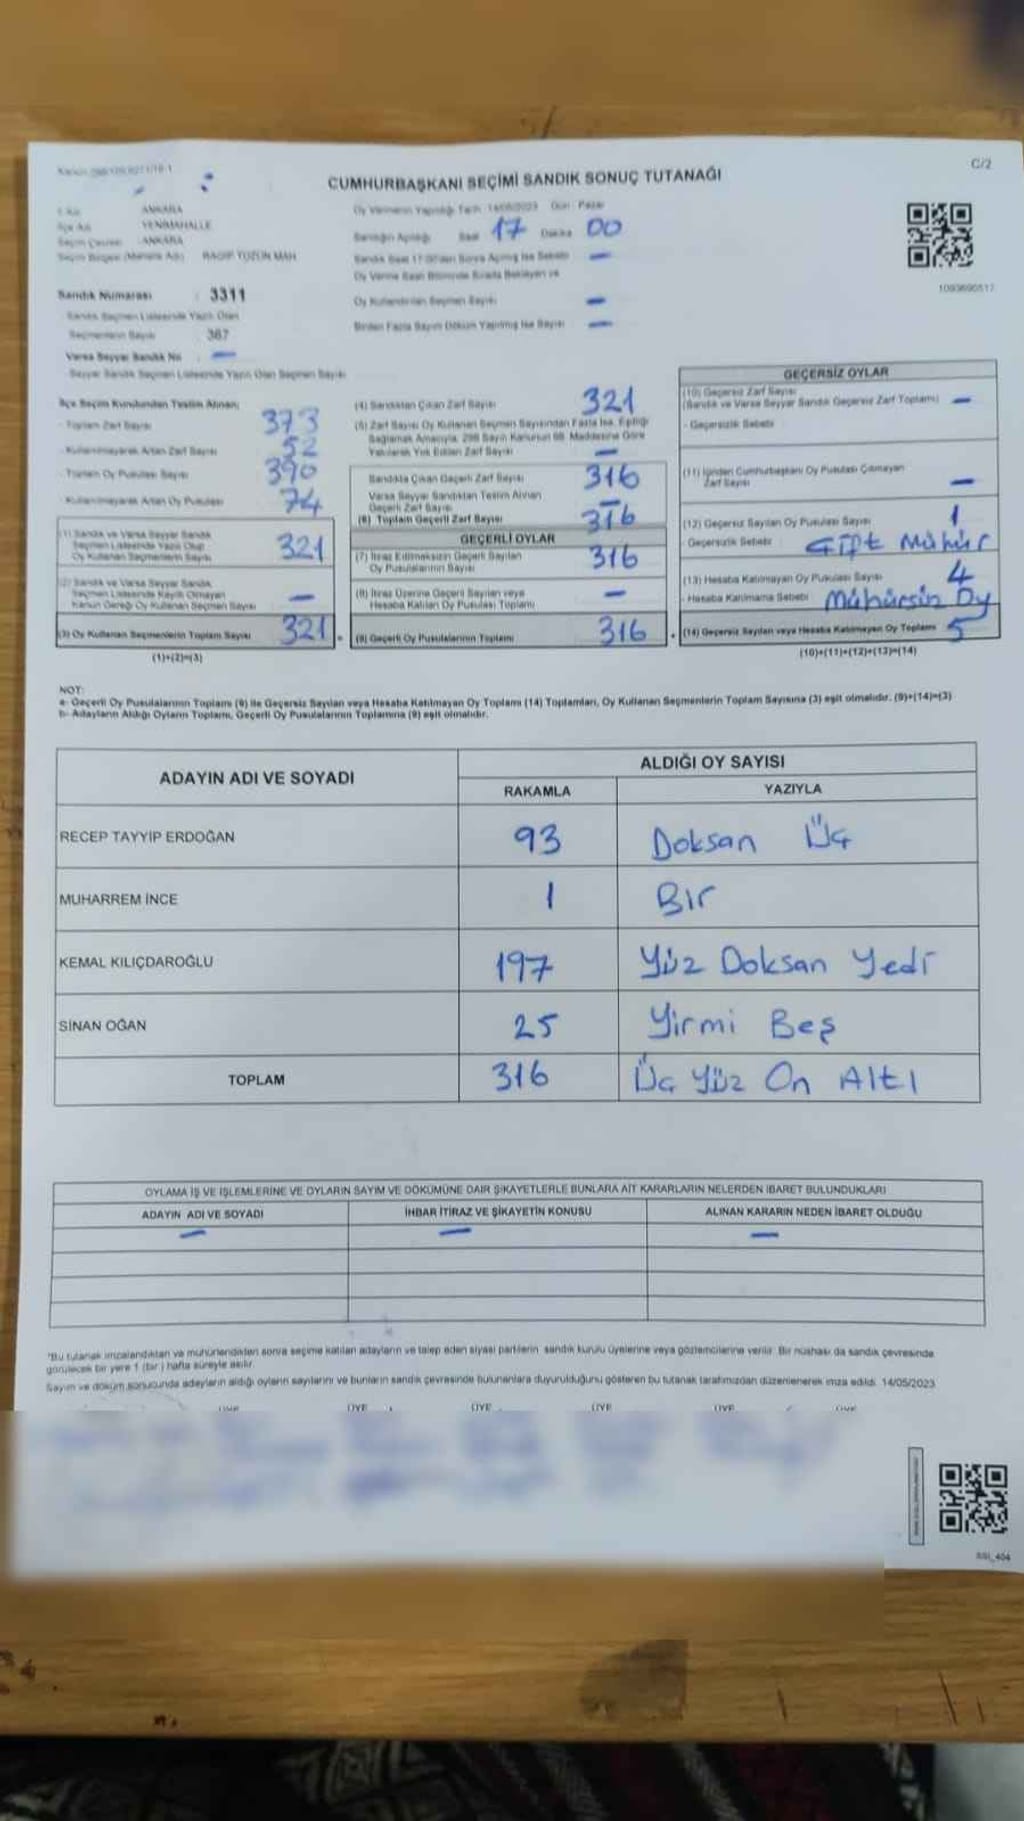 C/2
CUMHURBAŞKANI SEÇİMİ SANDIK SONUÇ TUTANAĞI
İl Adı : ANKARA
İlçe Adı : YENİMAHALLE
Seçim Çevresi : ANKARA
Seçim Bölgesi (Mahalle Adı) : RAGIP TÜZÜN MAH.
Sandık Numarası : 3311
Sandık Seçmen Listesinde Yazılı Olan
Seçmenlerin Sayısı : 367
Varsa Seyyar Sandık No : —
Seyyar Sandık Seçmen Listesinde Yazılı Olan Seçmen Sayısı
Oy Vermenin Yapıldığı Tarih 14/05/2023 Gün : Pazar
Sandığın Açıldığı Saat 17 Dakika 00
Sandık Saat 17:00'den Sonra Açılmış İse Sebebi —
Oy Verme Saati Bitiminde Sırada Bekleyen ve
Oy Kullandırılan Seçmen Sayısı —
Birden Fazla Sayım Döküm Yapılmış İse Sayısı —
1093690517
İlçe Seçim Kurulundan Teslim Alınan;
- Toplam Zarf Sayısı 373
- Kullanılmayarak Artan Zarf Sayısı 52
- Toplam Oy Pusulası Sayısı 390
- Kullanılmayarak Artan Oy Pusulası 74
(1) Sandık ve Varsa Seyyar Sandık
Seçmen Listesinde Yazılı Olup
Oy Kullanan Seçmenlerin Sayısı 321
(2) Sandık ve Varsa Seyyar Sandık
Seçmen Listesinde Kayıtlı Olmayan
Kanun Gereği Oy Kullanan Seçmen Sayısı —
(3) Oy Kullanan Seçmenlerin Toplam Sayısı 321
(1)+(2)=(3)
(4) Sandıktan Çıkan Zarf Sayısı 321
(5) Zarf Sayısı Oy Kullanan Seçmen Sayısından Fazla İse, Eşitliği
Sağlamak Amacıyla, 298 Sayılı Kanunun 98. Maddesine Göre
Yakılarak Yok Edilen Zarf Sayısı —
Sandıkta Çıkan Geçerli Zarf Sayısı 316
Varsa Seyyar Sandıktan Teslim Alınan
Geçerli Zarf Sayısı —
(6) Toplam Geçerli Zarf Sayısı 316
GEÇERLİ OYLAR
(7) İtiraz Edilmeksizin Geçerli Sayılan
Oy Pusulalarının Sayısı 316
(8) İtiraz Üzerine Geçerli Sayılan veya
Hesaba Katılan Oy Pusulası Toplamı —
(9) Geçerli Oy Pusulalarının Toplamı 316
GEÇERSİZ OYLAR
(10) Geçersiz Zarf Sayısı
(Sandık ve Varsa Seyyar Sandık Geçersiz Zarf Toplamı) —
- Geçersizlik Sebebi
(11) İçinden Cumhurbaşkanı Oy Pusulası Çıkmayan
Zarf Sayısı —
(12) Geçersiz Sayılan Oy Pusulası Sayısı 1
- Geçersizlik Sebebi Çift Mühür
(13) Hesaba Katılmayan Oy Pusulası Sayısı 4
- Hesaba Katılmama Sebebi Mühürsüz Oy
(14) Geçersiz Sayılan veya Hesaba Katılmayan Oy Toplamı 5
(10)+(11)+(12)+(13)=(14)
NOT:
a- Geçerli Oy Pusulalarının Toplamı (9) ile Geçersiz Sayılan veya Hesaba Katılmayan Oy Toplamı (14) Toplamları, Oy Kullanan Seçmenlerin Toplam Sayısına (3) eşit olmalıdır. (9)+(14)=(3)
b- Adayların Aldığı Oyların Toplamı, Geçerli Oy Pusulalarının Toplamına (9) eşit olmalıdır.
ADAYIN ADI VE SOYADI ALDIĞI OY SAYISI
RAKAMLA YAZIYLA
RECEP TAYYİP ERDOĞAN 93 Doksan Üç
MUHARREM İNCE 1 Bir
KEMAL KILIÇDAROĞLU 197 Yüz Doksan Yedi
SİNAN OĞAN 25 Yirmi Beş
TOPLAM 316 Üç Yüz On Altı
OYLAMA İŞ VE İŞLEMLERİNE VE OYLARIN SAYIM VE DÖKÜMÜNE DAİR ŞİKAYETLERLE BUNLARA AİT KARARLARIN NELERDEN İBARET BULUNDUKLARI
ADAYIN ADI VE SOYADI İHBAR İTİRAZ VE ŞİKAYETİN KONUSU ALINAN KARARIN NEDEN İBARET OLDUĞU
— — —
"Bu tutanak imzalandıktan ve mühürlendikten sonra seçime katılan adayların ve talep eden siyasi partilerin sandık kurulu üyelerine veya gözlemcilerine verilir. Bir nüshası da sandık çevresinde
görülecek bir yere 1 (bir) hafta süreyle asılır.
Sayım ve döküm sonucunda adayların aldığı oyların sayılarını ve bunların sandık çevresinde bulunanlara duyurulduğunu gösteren bu tutanak tarafımızdan düzenlenerek imza edildi. 14/05/2023
ÜYE ÜYE ÜYE ÜYE ÜYE ÜYE
SSI_404